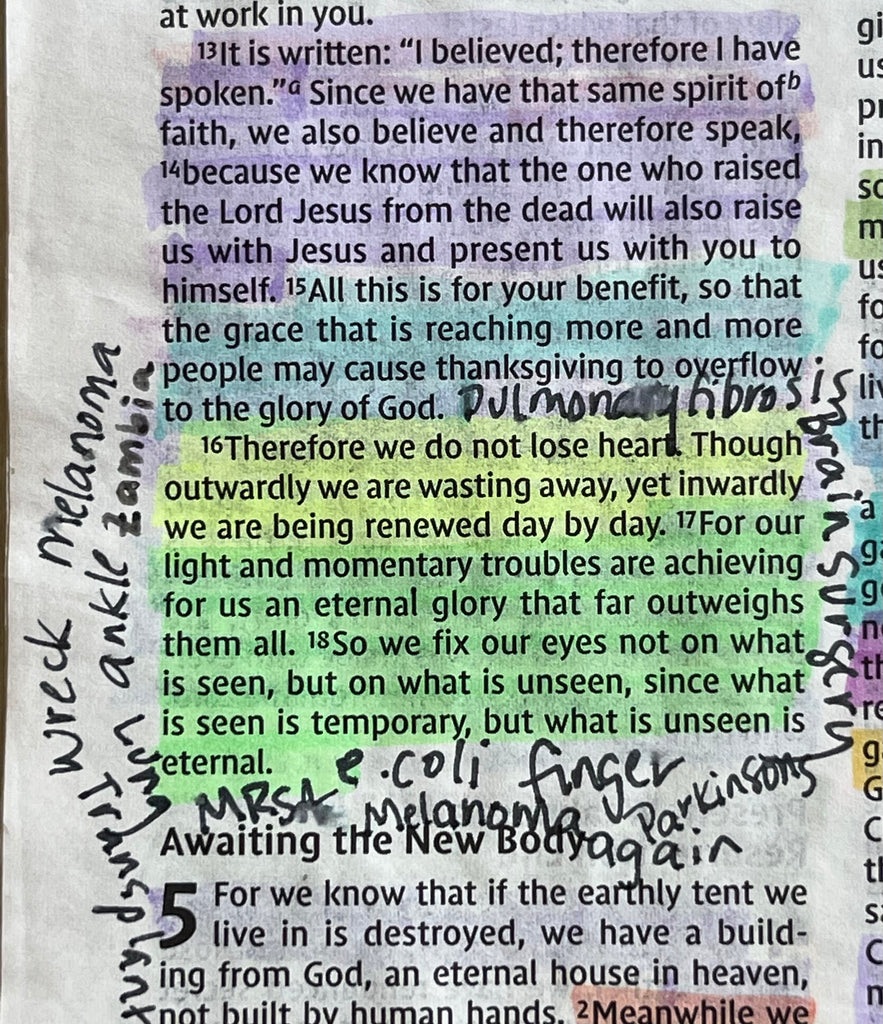 at work in you.
13It is written: “I believed; therefore I have
spoken.”a Since we have that same spirit ofb
faith, we also believe and therefore speak,
14because we know that the one who raised
the Lord Jesus from the dead will also raise
us with Jesus and present us with you to
himself. 15All this is for your benefit, so that
the grace that is reaching more and more
people may cause thanksgiving to overflow
to the glory of God.
16Therefore we do not lose heart. Though
outwardly we are wasting away, yet inwardly
we are being renewed day by day. 17For our
light and momentary troubles are achieving
for us an eternal glory that far outweighs
them all. 18So we fix our eyes not on what
is seen, but on what is unseen, since what
is seen is temporary, but what is unseen is
eternal.
Awaiting the New Body
5 For we know that if the earthly tent we
live in is destroyed, we have a build-
ing from God, an eternal house in heaven,
not built by human hands. 2Meanwhile we
Pulmonary fibrosis
Brain surgery
e.coli finger
MRSA Melanoma
again
Parkinsons
wreck melanoma
ankle zambia
lung
Transplant